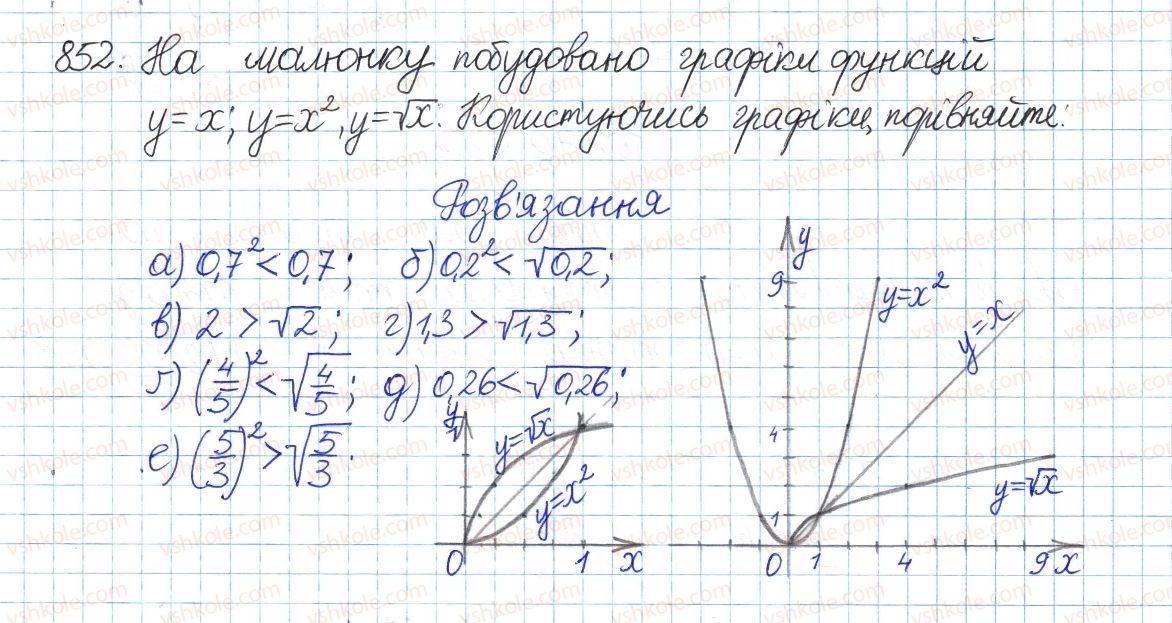 852. На малюнку побудовано графіки функцій
y=x; y=x², y=√x. Користуючись графіки, порівняйте:
Розв'язання
а) 0,7² < 0,7; б) 0,2² < √0,2;
в) 2 > √2; г) 1,3 > √1,3;
ґ) (4/5)² < √(4/5); д) 0,26 < √0,26;
е) (5/3)² > √(5/3).
y
1
y=√x
y=x²
0 1 x
y
9
y=x²
y=x
4
y=√x
1
0 1 4 9 x
vshkole.com